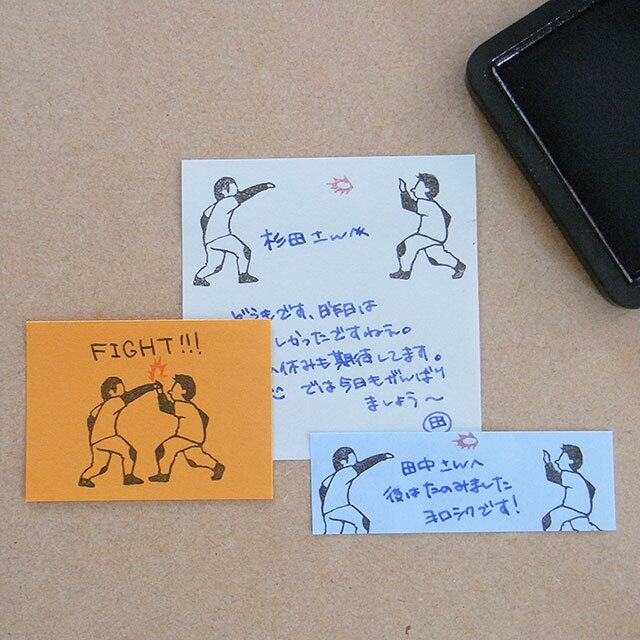 杉田さんへ
どうもです、昨日は
しかったですねぇ。
休みも期待してます。
では今日もがんばり
ましょう〜
田
FIGHT!!!
田中さんへ
後はたのみました
ヨロシクです!